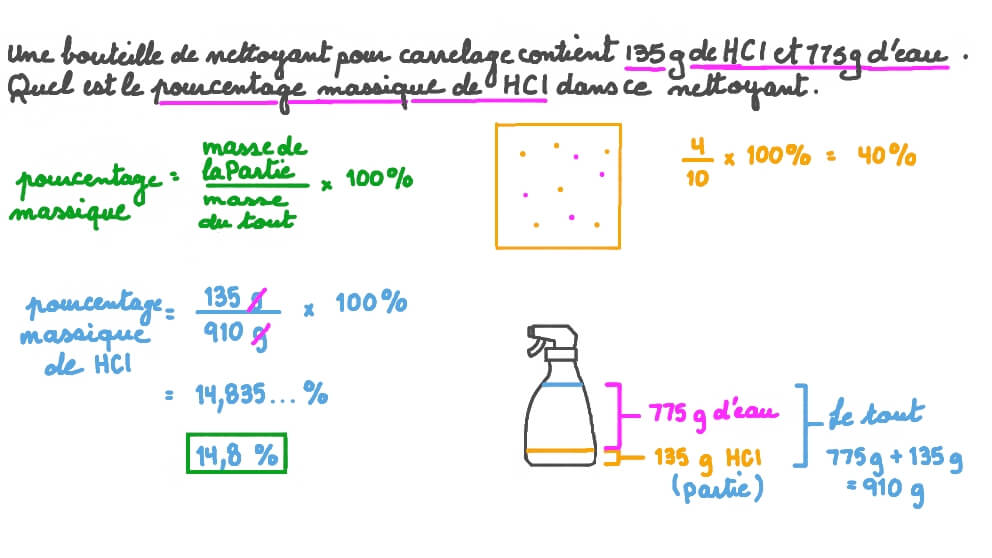 Une bouteille de nettoyant pour carrelage contient 135 g de HCl et 775 g d'eau .
Quel est le pourcentage massique de HCl dans ce nettoyant.
pourcentage massique = masse de la Partie / masse du tout x 100 %
4/10 x 100 % = 40 %
pourcentage massique de HCl = 135 g / 910 g x 100 %
= 14,835... %
14,8 %
775 g d'eau
135 g HCl
(partie)
Le tout
775 g + 135 g
= 910 g